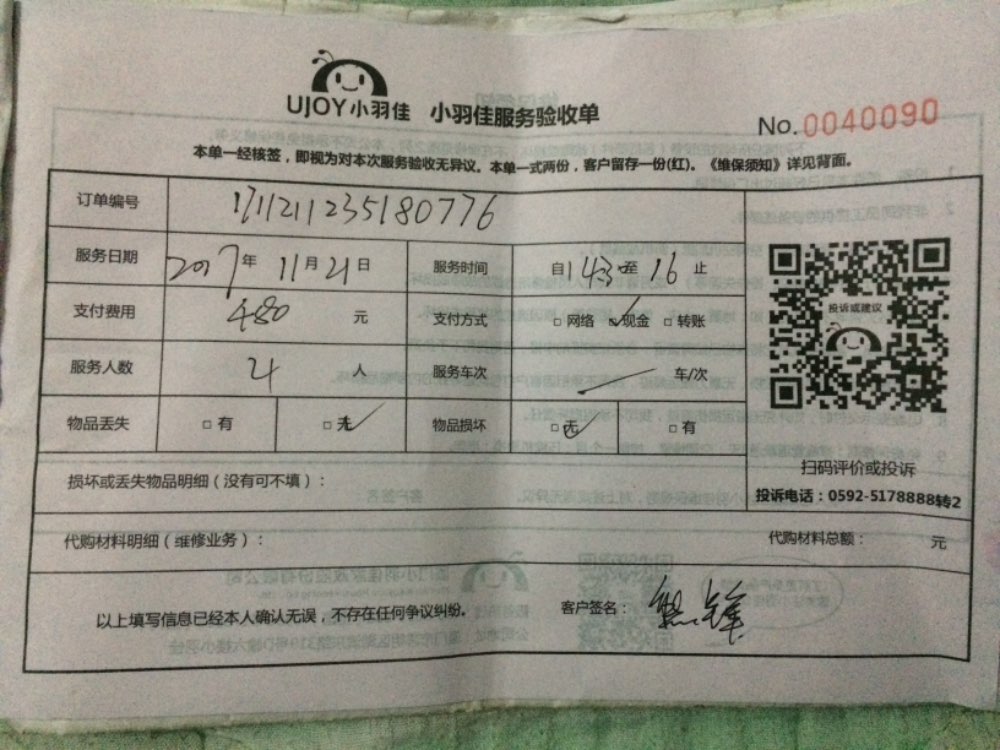 UJOY小羽佳 小羽佳服务验收单
No.0040090
本单一经核签，即视为对本次服务验收无异议。本单一式两份，客户留存一份(红)。《维保须知》详见背面。
订单编号 171121123518077​6
服务日期 2017年 11月21日 服务时间 自143至16止
支付费用 480 元 支付方式 □网络 ☑现金 □转账
服务人数 4 人 服务车次 车/次
物品丢失 □有 □无 物品损坏 □无 □有
扫码评价或投诉
投诉或建议
损坏或丢失物品明细（没有可不填）：
投诉电话：0592-5178888转2
代购材料明细（维修业务）： 代购材料总额： 元
以上填写信息已经本人确认无误，不存在任何争议纠纷。 客户签名：